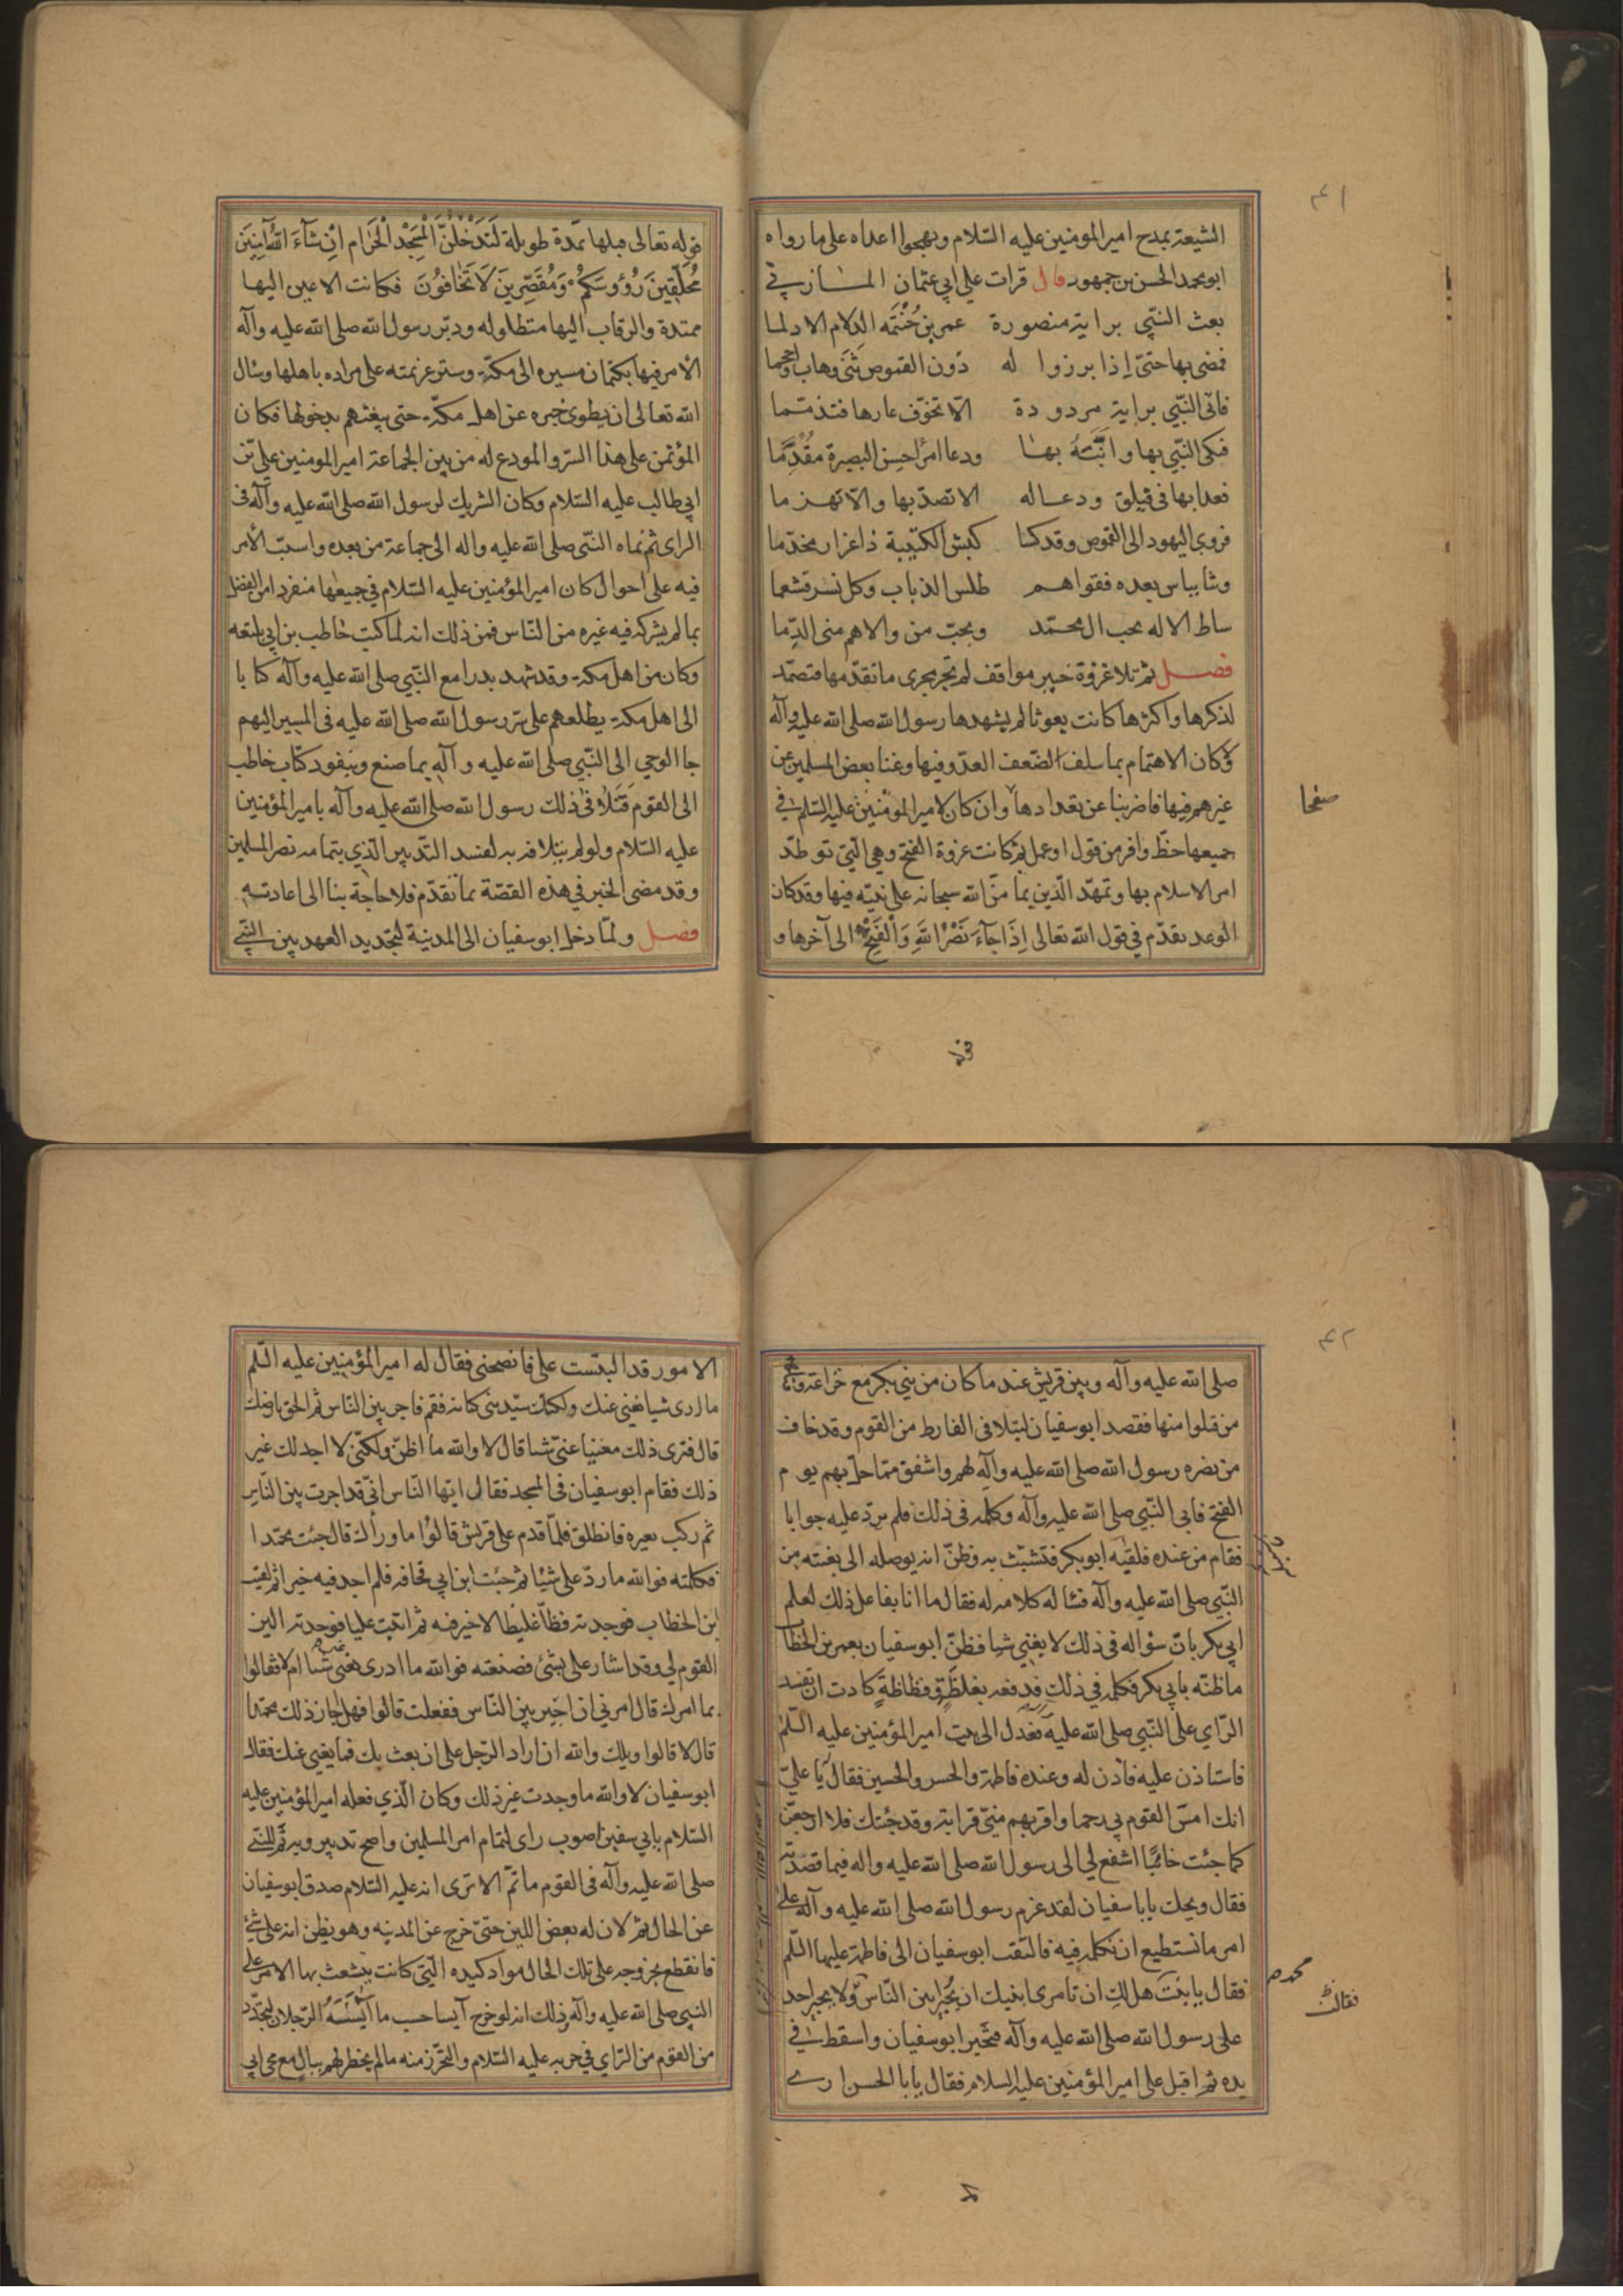 ٤١
الشيعة بمدح امير المومنين عليه السّلام ويهجوا اعداه على ما رواه
ابو محمد الحسن بن جمهور قال قرات على ابي عثمان المازني
بعث النّبي براية منصورة عمر بن حنتمه الدلام الادلما
فمضى بها حتىّ إذا برزوا له دون القموص ثنى وهاب واحجما
فاتى النّبي براية مردودة الّا تخوّف عارها فتذمّما
فبكى النّبي بها وانّبه بها ودعا امرأ حسن البصيرة مقدّما
فغدا بها في فيلق ودعاله الا تصدّ بها والّا تهزما
فزوى اليهود الى القموص وقد كسا كبش الكتيبة ذا غرار مخذما
وثنا بباس بعده فقواهم طلس الذباب وكل نسر قشعما
ساط الاله بحب ال محمّد وبحبّ من والاهم منى الدّما
فصل ثم تلا غزوة خيبر مواقف لم تجر مجرى ما تقدّمها فتصمّد
لذكرها واكثرها كانت بعوثا لم يشهدها رسول الله صلى الله عليه وآله
ولا كان الاهتمام بما سلف لضعف العدّو فيها وغنا بعض المسلمين عن
غيرهم فيها فاضربنا عن تعدادها وان كان لامير المؤمنين عليه السّلم في
جميعها حظّ وافر من قول او عمل ثم كانت غزوة الفتح وهي الّتي توطّد
امر الاسلام بها وتمهّد الّدين بما منّ الله سبحانه على نبيّه فيها وقد كان
الوعد تقدّم في قول الله تعالى إِذَا جَآءَ نَصْرُ اللَّهِ وَالْفَتْحُ الى آخرها و
صفحا
قوله تعالى قبلها بمّدة طويلة لَتَدْخُلُنَّ الْمَسْجِدَ الْحَرَام اِنْ شَآءَ اللهُ آمِنِينَ
مُحَلِّقِينَ رُؤُوسَكُمْ وَمُقَصِّرِينَ لَا تَخَافُونَ فكانت الاعين اليها
ممتدة والرقاب اليها متطاوله ودبّر رسول الله صلى الله عليه وآله
الأمر فيها بكتمان مسيره الى مكّة وستر عزيمته على مراده باهلها وسئال
الله تعالى ان يطوى خبره عن اهل مكّة حتى يبغتهم بدخولها فكان
المؤتمن على هذا السّر والمودع له من بين الجماعة امير المومنين على بن
ابي طالب عليه السّلام وكان الشريك لرسول الله صلى الله عليه وآله فى
الراى ثم نماه النبّى صلى الله عليه واله الى جماعة من بعده واستبّ الأمر
فيه على احوال كان امير المؤمنين عليه السّلام في جميعها منفردا من الفضل
بما لم يشركه فيه غيره من النّاس فمن ذلك انه لما كتب خاطب بن ابي بلتعه
وكان من اهل مكة وقد شهد بدرا مع النّبي صلى الله عليه وآله كتابا
الى اهل مكة يطلعهم على سّر رسول الله صلى الله عليه فى المسير اليهم
جا الوحي الى النّبي صلى الله عليه وآله بما صنع وبنفوذ كتاب خاطب
الى القوم فَتَلافى ذلك رسول الله صلى الله عليه وآله بامير المؤمنين
عليه السّلام ولو لم يتلافه به لفسد التّدبير الّذي بتمامه نصر المسلمين
وقد مضى الخبر في هذه القصّة بما تقدّم فلا حاجة بنا الى اعادته
فصل ولمّا دخل ابو سفيان الى المدينة لتجديد العهد بين النّبي
٤٢
صلى الله عليه وآله وبين قريش عند ما كان من بني بكر مع خزاعة وقتلهم
من قتلوا منها فقصد ابو سفيان ليتلافى الفارط من القوم وقد خاف
من نصره رسول الله صلى الله عليه وآله لهم واشفق ممّا حلّ بهم يوم
الفتح فاتى النّبي صلى الله عليه وآله وكلمه فى ذلك فلم يردّ عليه جوابا
فقام من عنده فلقيه ابو بكر فتشبّث به وظنّ انه يوصله الى بغيته من
النّبي صلى الله عليه وآله فسئاله كلامه له فقال ما انا بفاعل ذلك لعلم
ابي بكر بانّ سؤاله في ذلك لا يغني شيا فظنّ ابو سفيان بعمر بن الخطاب
ما ظنّه بابي بكر فكلمه في ذلك فدفعه بغلظَةٍ وفظاظةٍ كادت ان تفسد
الرّاي على النّبي صلى الله عليه فعدل الى بيت امير المؤمنين عليه السّلم
فاستاذن عليه فاذن له وعنده فاطمة والحسن والحسين فقال يا عليّ
انك امسّ القوم بي رحما واقربهم منّى قرابة وقد جئتك فلا ارجعنّ
كما جئت خائبًا اشفع لي الى رسول الله صلى الله عليه واله فيما قصدته
فقال ويحك يابا سفيان لقد عزم رسول الله صلى الله عليه وآله على
امر ما نستطيع ان نكلمه فيه فالتفت ابو سفيان الى فاطمة عليها السّلم
فقال يا بنت هل لك ان تامرى ابنيك ان يُجيرا بين النّاس ولا يجير احد
على رسول الله صلى الله عليه وآله فتحير ابو سفيان واسقط في
يده ثم اقبل على امير المؤمنين عليه السلام فقال يابا الحسن ارى
محمد
فقالت
الامور قد التبست على فانصحنى فقال له امير المؤمنين عليه السّلم
ما ارى شيا يغني عنك ولكنك سيّد بني كنانه فقم فاجر بين النّاس ثم الحق بارضك
قال فترى ذلك مغنيا عنّى شيا قال لا والله ما اظنّ ولكنّى لا اجد لك غير
ذلك فقام ابو سفيان فى المسجد فقال ايّها النّاس انّى قد اجرت بين النّاس
ثم ركب بعيره فانطلق فلمّا قدم على قريش قالُوا ما ورآك قال جئت محمّدا
فكلمته فو الله ما ردّ على شيًا ثم جئت ابن ابي قحافه فلم اجد فيه خيرا ثم لقيت
ابن الخطاب فوجدته فظّا غليظا لا خير فيه ثم اتيت عليا فوجدته الين
القوم لي وقد اشار على بشئ فصنعته فوالله ما ادرى يغني شيا ام لا فقالوا
بما امرك قال امرني ان اجير بين النّاس ففعلت قالوا فهل اجاز ذلك محمّد
قال لا قالوا ويلك والله ان زاد الرّجل على ان لعب بك فما يغني عنك فقال
ابو سفيان لا والله ما وجدت غير ذلك وكان الّذي فعله امير المؤمنين عليه
السّلام بابي سفين اصوب راى لتمام امر المسلمين واصح تدبير وبه تمّ للنّبي
صلى الله عليه وآله فى القوم ما تمّ الا ترى انه عليه السّلام صدق ابو سفيان
عن الحال ثم لان له بعض اللين حتىّ خرج عن المدينه وهو يظن انه على شئ
فانقطع بخروجه على تلك الحال مواد كيده الّتي كانت يتشعث بها الامر على
النبي صلى الله عليه وآله وذلك انه لو خرج آيسا حسب ما آيَسَهُ الرّجلان لتجدّد
من القوم من الرّاي في حربه عليه السّلام والتحرّز منه ما لم يخطر لهم ببال مع مجى ابي